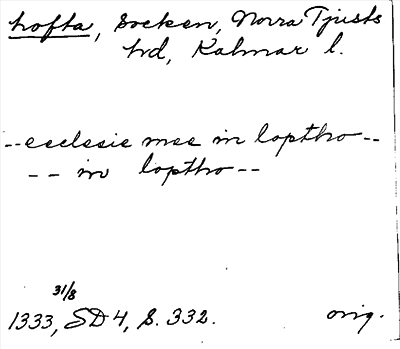 Lofta, Socken, Norra Tjusts
hd, Kalmar l.
--ecclesie mee in loptho--
-- in loptho--
31/8
1333, SD 4, S. 332. orig.